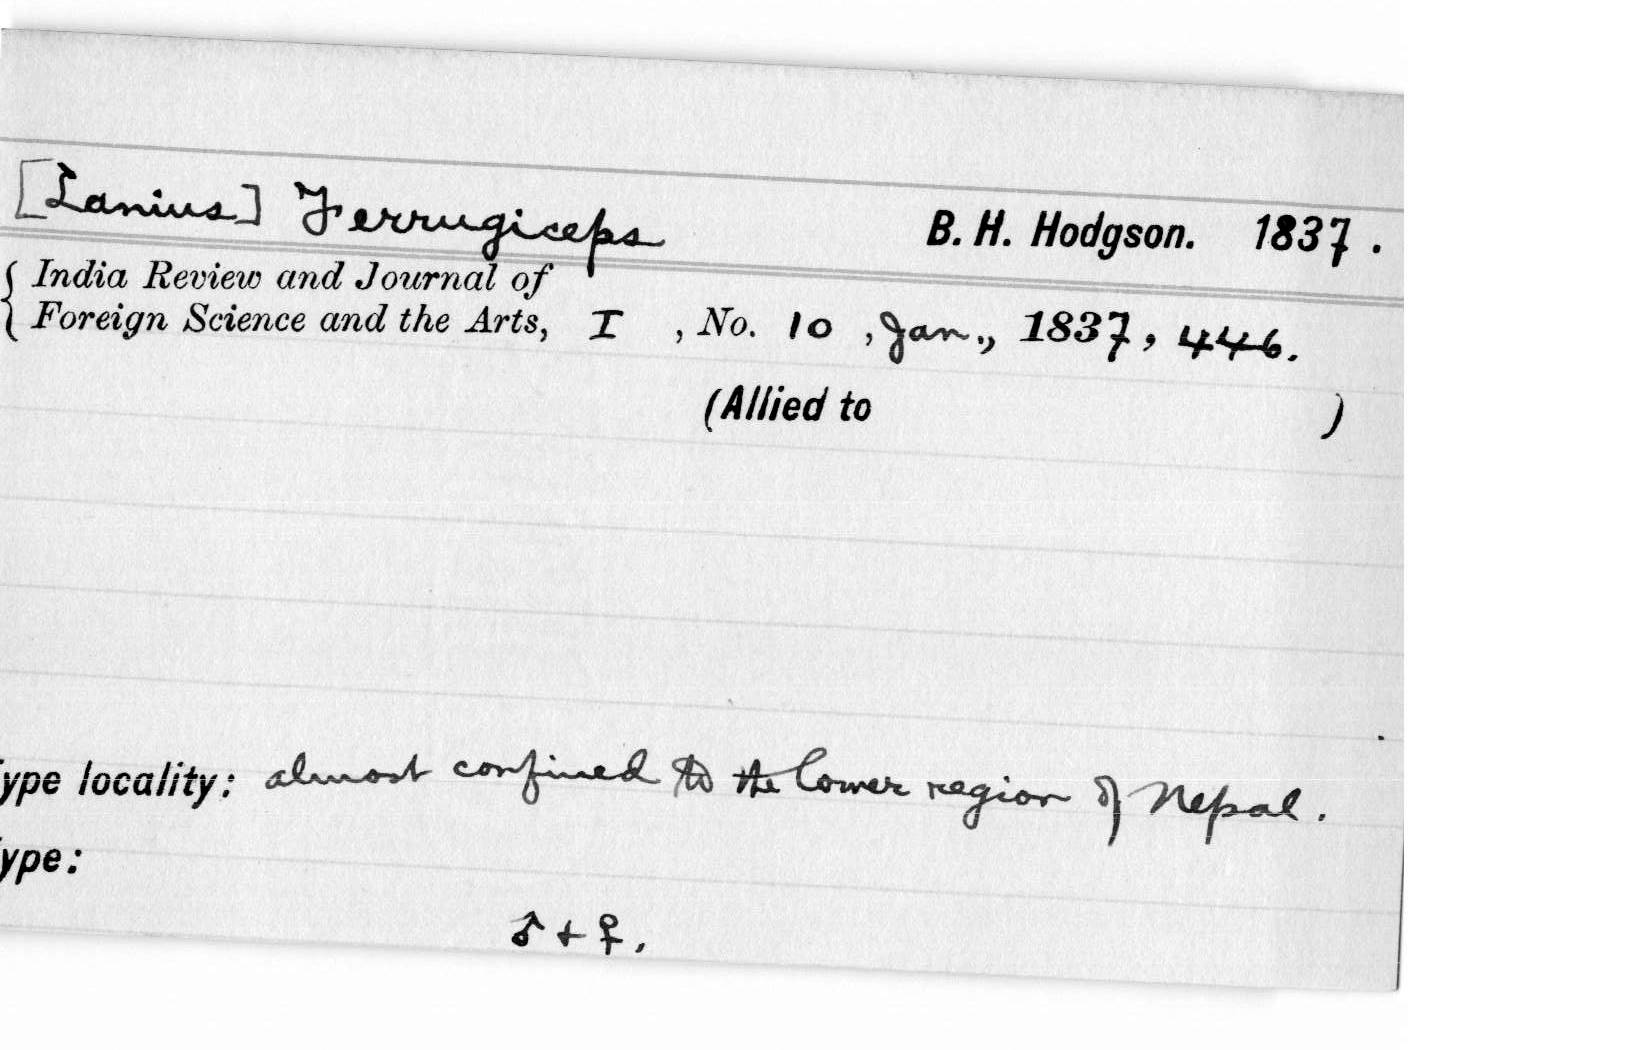 [Lanius] Ferrugiceps B. H. Hodgson. 1837.
India Review and Journal of
Foreign Science and the Arts, I, No. 10, Jan., 1837, 446.
(Allied to )
ype locality: almost confined to the lower region of Nepal.
ype:
♂ + ♀.